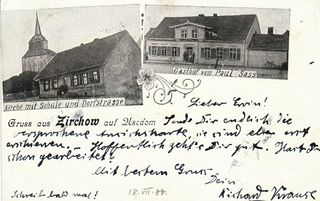 Kirche mit Schule und Dorfstrasse
Gasthof von Paul Sass
Gruss aus Zirchow auf Usedom
Lieber Erwin!
Sende Dir endlich die
versprochene Ansichtskarte, sie sind eben erst
erschienen. Hoffentlich geht's Dir gut. Hast Du
schon gearbeitet?
Mit bestem Gruss
Dein
Richard Krause
Schreib bald mal!